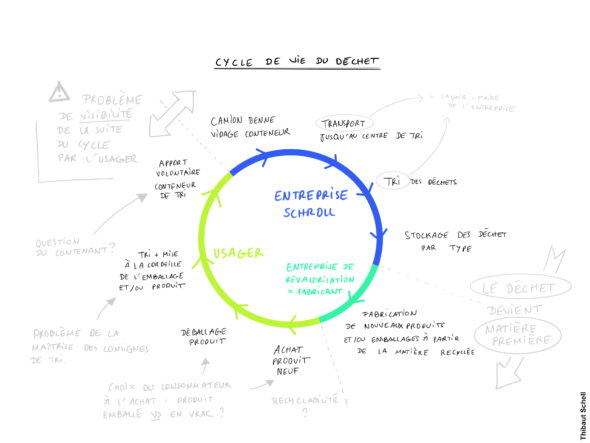 CYCLE DE VIE DU DÉCHET
PROBLÈME
DE VISIBILITÉ
DE LA SUITE
DU CYCLE
PAR L'USAGER
CAMION BENNE
VIDAGE CONTENEUR
TRANSPORT
JUSQU'AU CENTRE DE TRI
SAVOIR-FAIRE
DE L'ENTREPRISE
TRI DES DÉCHETS
APPORT
VOLONTAIRE
CONTENEUR
DE TRI
ENTREPRISE
SCHROLL
STOCKAGE DES DÉCHET
PAR TYPE
QUESTION
DU CONTENANT ?
TRI + MISE
À LA CORBEILLE
DE L'EMBALLAGE
ET/OU PRODUIT
USAGER
ENTREPRISE DE
REVALORISATION
= FABRICANT
LE DÉCHET
DEVIENT
MATIÈRE
PREMIÈRE
FABRICATION
DE NOUVEAUX PRODUITS
ET/OU EMBALLAGES À PARTIR
DE LA MATIÈRE RECYCLÉE
PROBLÈME DE LA
MAÎTRISE DES CONSIGNES
DE TRI.
DÉBALLAGE
PRODUIT
ACHAT
PRODUIT
NEUF
CHOIX DU CONSOMMATEUR
À L'ACHAT : PRODUIT
EMBALLÉ VS EN VRAC ?
RECYCLABILITÉ
?
Thibaut Schell